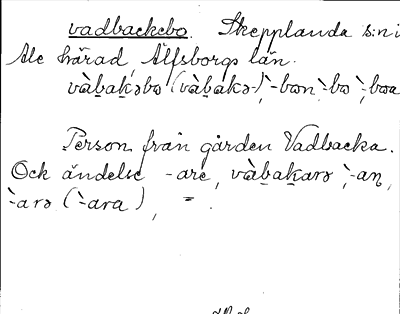 vadbackebo. Skepplanda s:n i
Ale härad, Älfsborgs län.
vàḇaḵəbə (vàḇakə-), `-bɷn `-bə `, `-bɷa
Person från gården Vadbacka.
Ock ändelse -are, vàḇaḵarə `, -aṇ,
`-arə (`-ara), = .